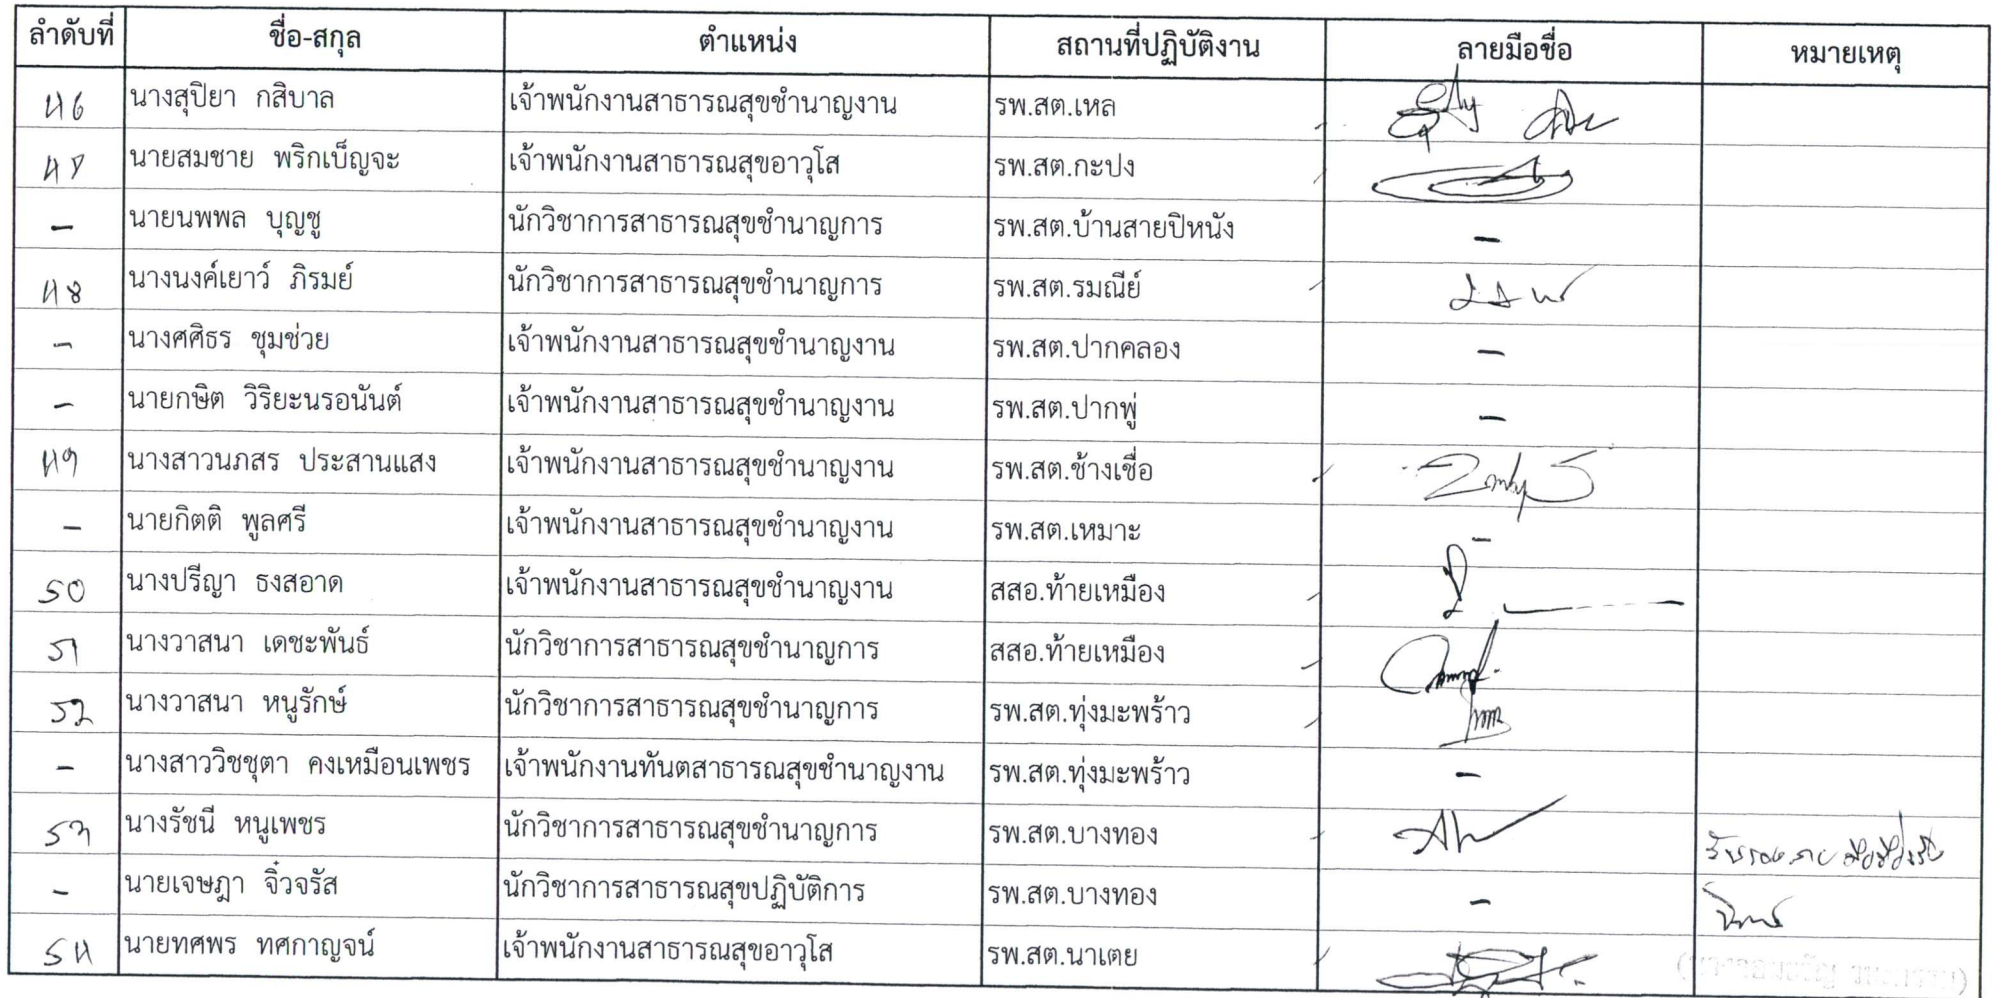 ลำดับที่ ชื่อ-สกุล ตำแหน่ง สถานที่ปฏิบัติงาน ลายมือชื่อ หมายเหตุ
46 นางสุปิยา กสิบาล เจ้าพนักงานสาธารณสุขชำนาญงาน รพ.สต.เหล
47 นายสมชาย พริกเบ็ญจะ เจ้าพนักงานสาธารณสุขอาวุโส รพ.สต.กะปง
- นายนพพล บุญชู นักวิชาการสาธารณสุขชำนาญการ รพ.สต.บ้านสายปิหนัง -
48 นางนงค์เยาว์ ภิรมย์ นักวิชาการสาธารณสุขชำนาญการ รพ.สต.รมณีย์
- นางศศิธร ชุมช่วย เจ้าพนักงานสาธารณสุขชำนาญงาน รพ.สต.ปากคลอง -
- นายกษิต วิริยะนรอนันต์ เจ้าพนักงานสาธารณสุขชำนาญงาน รพ.สต.ปากพู่ -
49 นางสาวนภสร ประสานแสง เจ้าพนักงานสาธารณสุขชำนาญงาน รพ.สต.ช้างเชื่อ
- นายกิตติ พูลศรี เจ้าพนักงานสาธารณสุขชำนาญงาน รพ.สต.เหมาะ -
50 นางปรีญา ธงสอาด เจ้าพนักงานสาธารณสุขชำนาญงาน สสอ.ท้ายเหมือง
51 นางวาสนา เดชะพันธ์ นักวิชาการสาธารณสุขชำนาญการ สสอ.ท้ายเหมือง
52 นางวาสนา หนูรักษ์ นักวิชาการสาธารณสุขชำนาญการ รพ.สต.ทุ่งมะพร้าว
- นางสาววิชชุตา คงเหมือนเพชร เจ้าพนักงานทันตสาธารณสุขชำนาญงาน รพ.สต.ทุ่งมะพร้าว -
53 นางรัชนี หนูเพชร นักวิชาการสาธารณสุขชำนาญการ รพ.สต.บางทอง
- นายเจษฎา จิ๋วจรัส นักวิชาการสาธารณสุขปฏิบัติการ รพ.สต.บางทอง -
54 นายทศพร ทศกาญจน์ เจ้าพนักงานสาธารณสุขอาวุโส รพ.สต.นาเตย